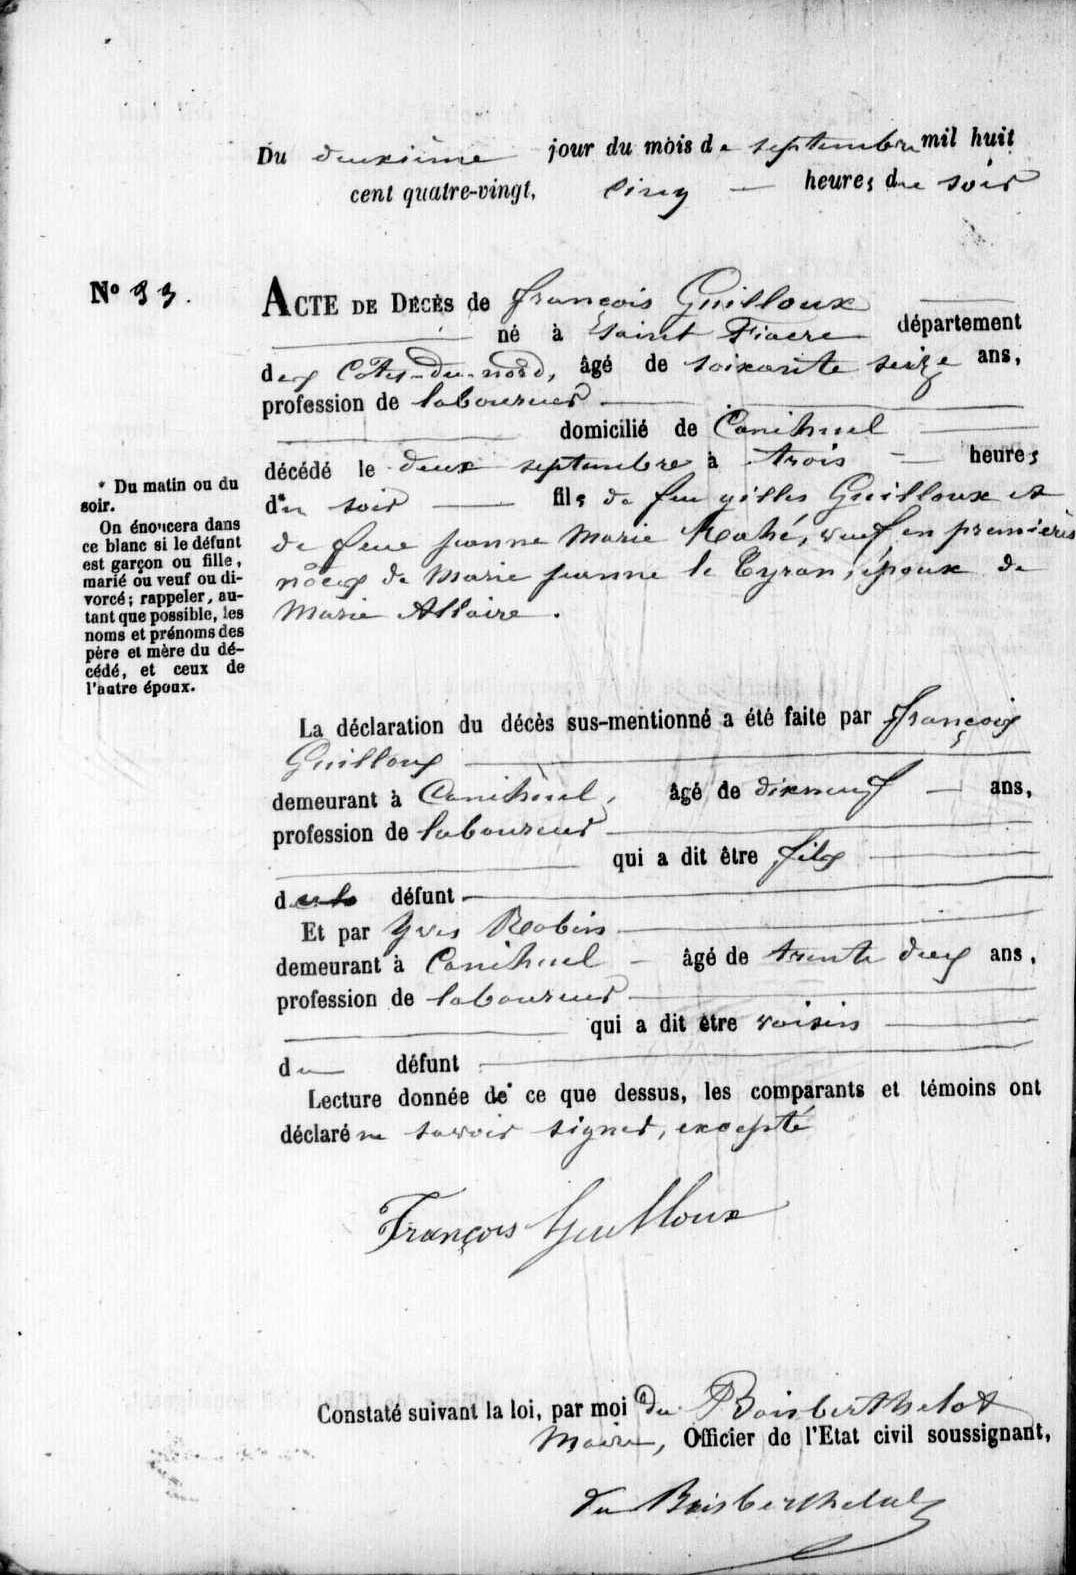 Du deuxième jour du mois de septembre mil huit
cent quatre-vingt, cinq heures du soir
N° 33.
ACTE DE DÉCÈS de françois Guilloux
né à Saint Fiacre département
des Côtes-du-nord, âgé de soixante seize ans,
profession de laboureur
domicilié de Canihuel
décédé le deux septembre à trois heures
du soir fils de feu gilles Guilloux et
de feue jeanne Marie Mahé, veuf en premières
nôces de Marie jeanne le Tyran, époux de
Marie Allaire.
* Du matin ou du
soir.
On énoncera dans
ce blanc si le défunt
est garçon ou fille,
marié ou veuf ou di-
vorcé; rappeler, au-
tant que possible, les
noms et prénoms des
père et mère du dé-
cédé, et ceux de
l'autre époux.
La déclaration du décès sus-mentionné a été faite par françois
Guilloux
demeurant à Canihuel, âgé de dixneuf ans,
profession de laboureur
qui a dit être fils
défunt
Et par Yves Robin
demeurant à Canihuel âgé de trente deux ans,
profession de laboureur
qui a dit être voisin
du défunt
Lecture donnée de ce que dessus, les comparants et témoins ont
déclaré ne savoir signer, excepté
François Guilloux
Constaté suivant la loi, par moi du Boisberthelot
Maire, Officier de l'Etat civil soussignant,
du Boisberthelot